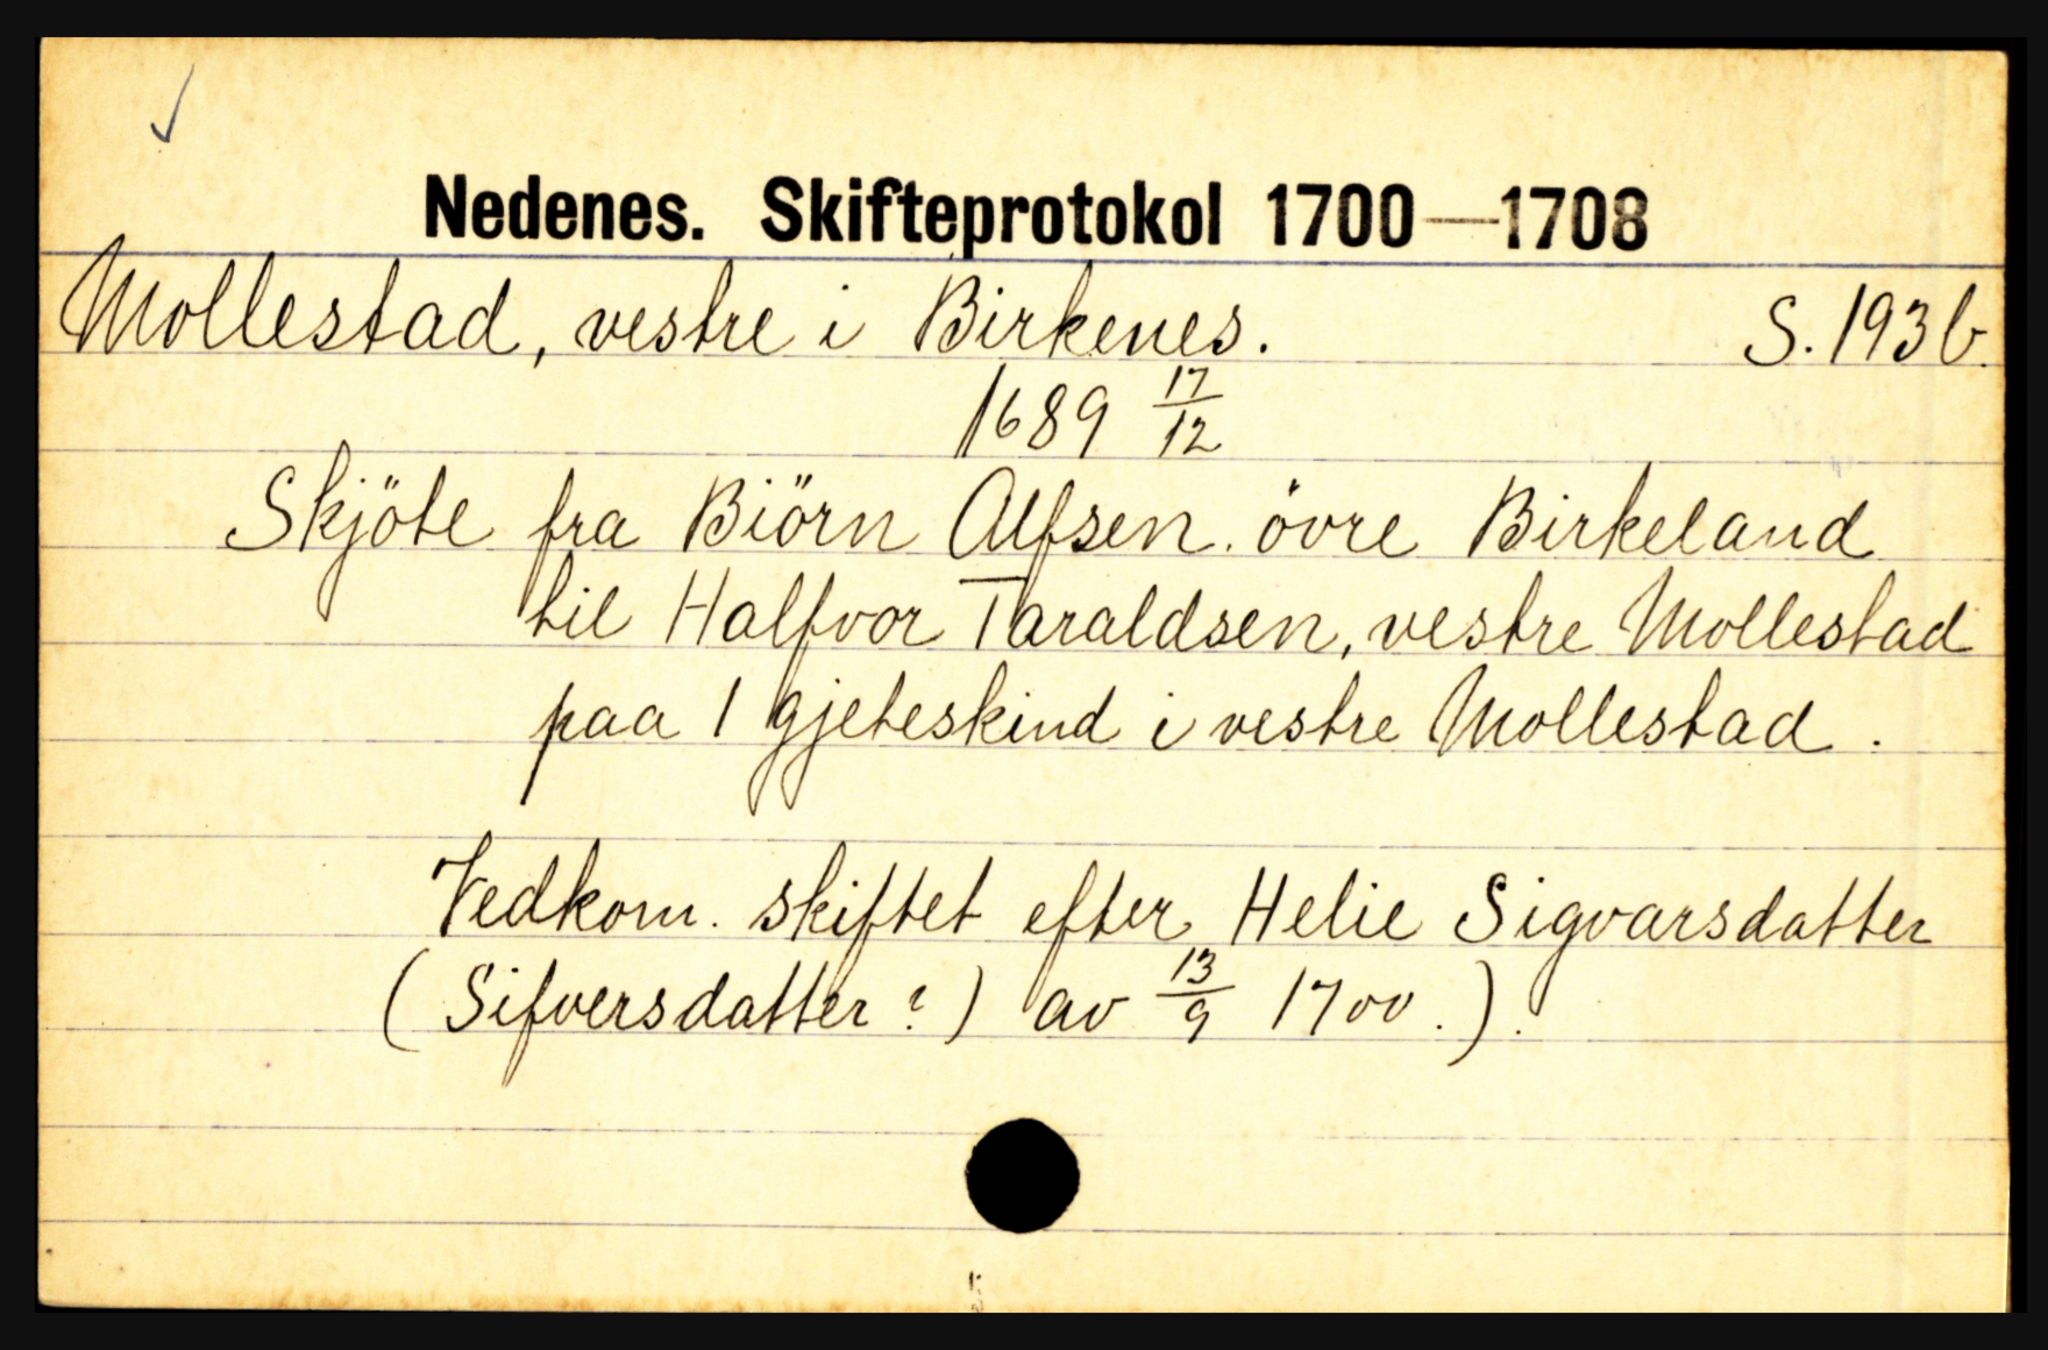 Nedenes. Skifteprotokol 1700—1708
Mollestad, vestre i Birkenes. S. 193b.
1689 17/12
Skjöte fra Biörn Alfsen. övre Birkeland
til Halfvor Taraldsen, vestre Mollestad
paa 1 gjeteskind i vestre Mollestad.
Vedkom. skiftet efter Helie Sigvarsdatter
(Sifversdatter?) av 13/9 1700.).